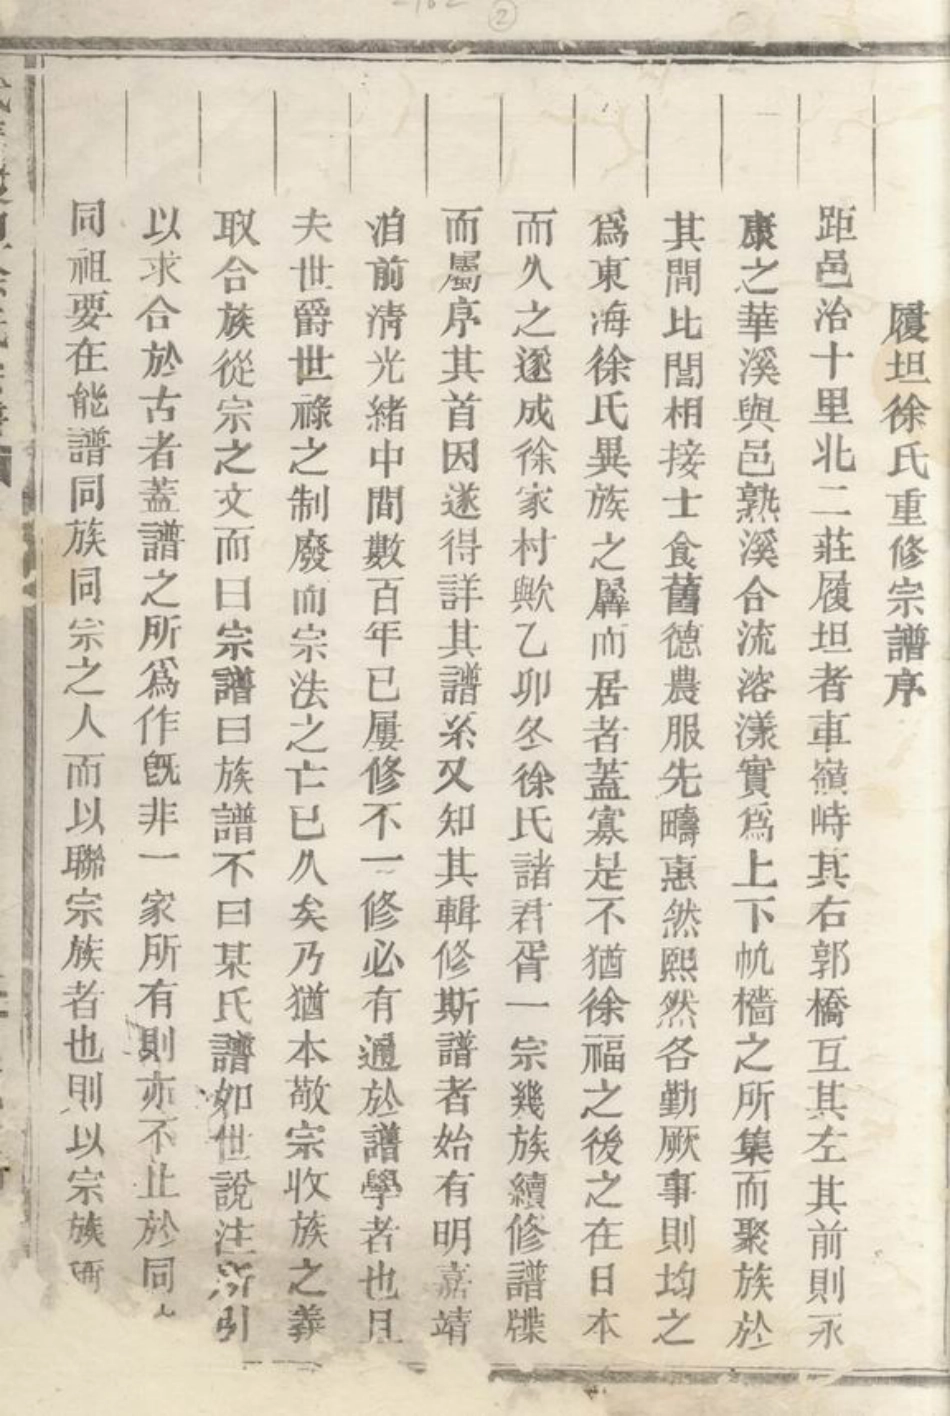 ②
履坦徐氏重修宗譜序
距邑治十里北二莊履坦者車嶺峙其右郭橋互其左其前則永
康之華溪與邑熟溪合流溶漾實爲上下帆檣之所集而聚族於
其間比閭相接士食舊德農服先疇惠然熙然各勤厥事則均之
爲東海徐氏異族之羼而居者蓋寡是不猶徐福之後之在日本
而久之遂成徐家村歟乙卯冬徐氏諸君胥一宗幾族續修譜牒
而屬序其首因遂得詳其譜系又知其輯修斯譜者始有明嘉靖
洎前清光緒中間數百年已屢修不一修必有邇於譜學者也且
夫世爵世祿之制廢而宗法之亡已久矣乃猶本敬宗收族之義
取合族從宗之文而曰宗譜曰族譜不曰某氏譜如世說注所引
以求合於古者蓋譜之所爲作旣非一家所有則亦不止於同
同祖要在能譜同族同宗之人而以聯宗族者也則以宗族